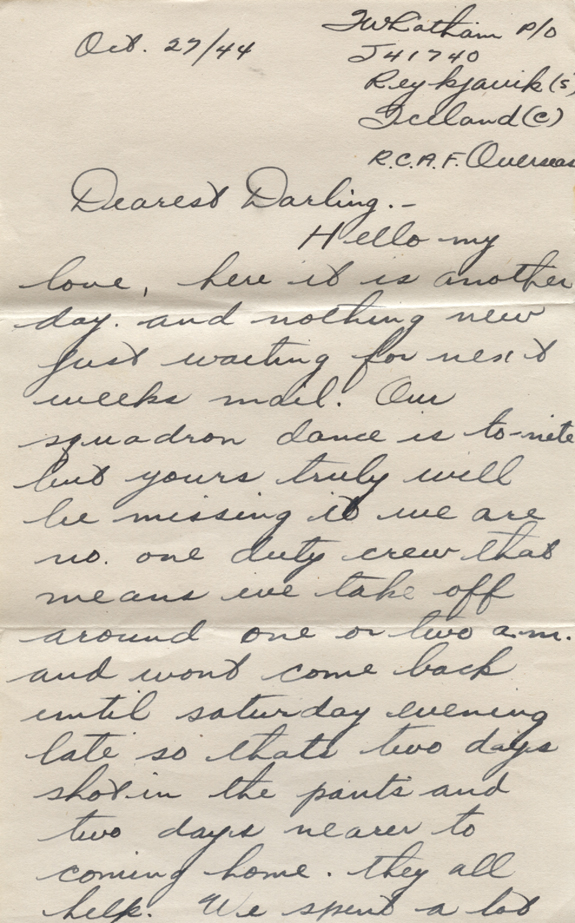 Oct. 27/44
JWLatham P/O
J41740
Reykjavik (s)
Iceland (C)
R.C.A.F. Overseas
Dearest Darling.-
Hello my
love, here it is another
day. and nothing new
just waiting for next
weeks mail. Our
squadron dance is to-nite
but yours truly will
be missing it we are
no. one duty crew that
means we take off
around one or two a.m.
and wont come back
until saturday evening
late so thats two days
shot in the pants and
two days nearer to
coming home. they all
help. We spent a lot